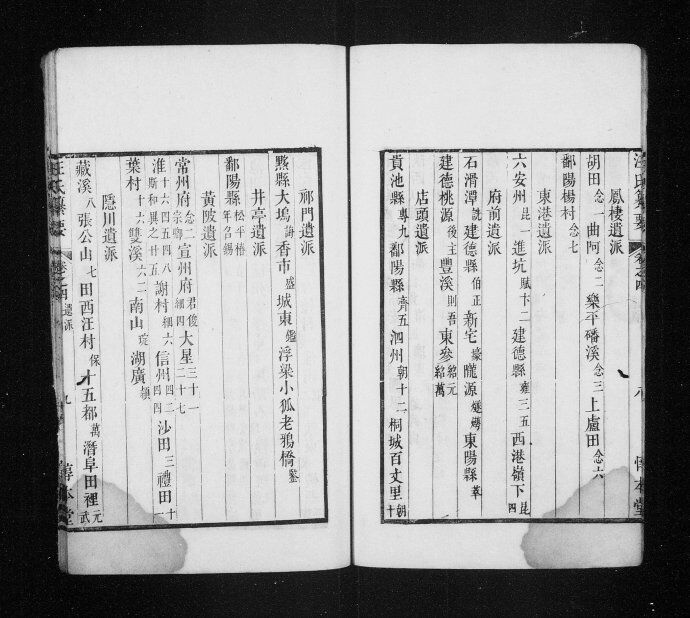 鳳棲遺派
胡田念一曲阿念二樂平磻溪念三上盧田念六
鄱陽楊村念七
東港遺派
六安州昆一進坑賦十二建德縣雍三五西港嶺下昆四
府前遺派
石滑潭建德縣伯正新宅豪隴源東陽縣萃
建德桃源後主豐溪則吾東參紹元紹萬
店頭遺派
貴池縣專九鄱陽縣齊五泗州朝十二桐城百丈里朝十
汪氏纂要 卷之四 八 惇本堂
祁門遺派
黟縣大塢誨香市盛城東鑑浮梁小狐老鴉橋鑒
井亭遺派
鄱陽縣松平椿年名錫
黃陂遺派
常州府念二宗卿宣州府君俊細四大星三十一二十七
淮十六四五四八斯和異之廿五謝村細六信州四二四四沙田三禮田十一
葉村十六雙溪六二南山琁湖廣穎
隱川遺派
藏溪八張公山七田西汪村保十五都萬潛阜田裡元武
汪氏纂要 卷之四 遺派 九 惇本堂